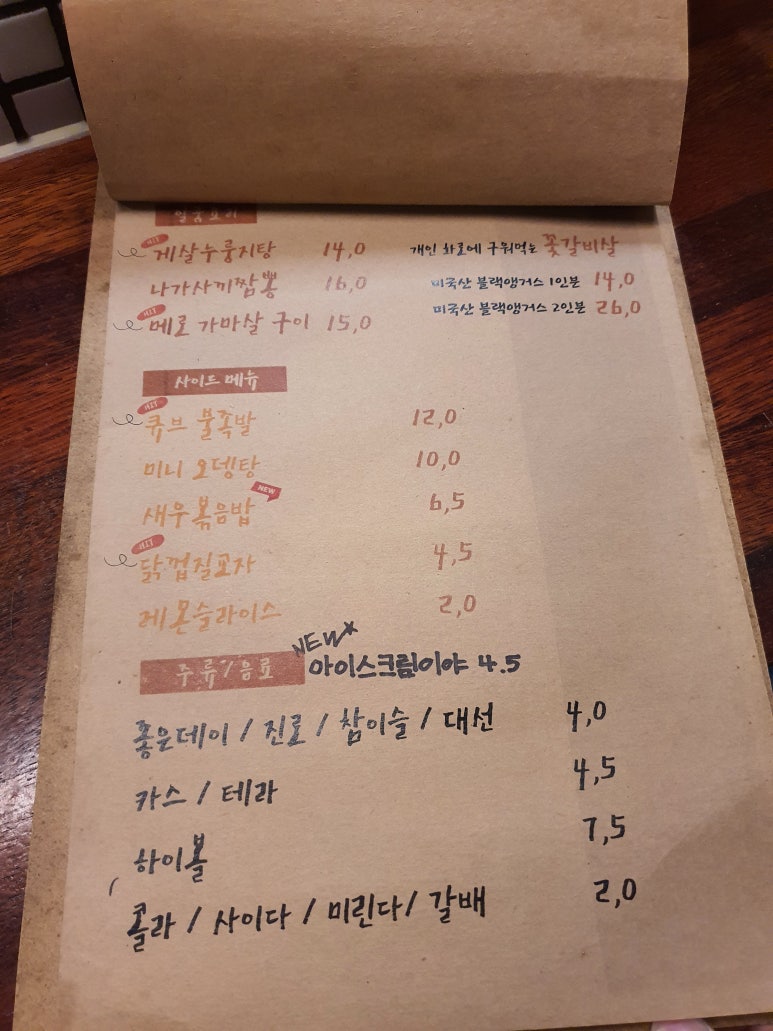 일품요리
HIT
게살누룽지탕 14,0
나가사끼짬뽕 16,0
HIT
메로 가마살 구이 15,0
개인 화로에 구워먹는 꽃갈비살
미국산 블랙앵거스 1인분 14,0
미국산 블랙앵거스 2인분 26,0
사이드 메뉴
HIT
큐브 불족발 12,0
미니 오뎅탕 10,0
새우볶음밥 NEW 6,5
HIT
닭껍질교자 4,5
레몬슬라이스 2,0
NEW
주류/음료 아이스크림이야 4.5
좋은데이 / 진로 / 참이슬 / 대선 4,0
카스 / 테라 4,5
하이볼 7,5
콜라 / 사이다 / 미린다 / 갈배 2,0